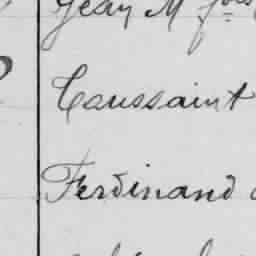 Jean M fois
Caussaint
Ferdinand